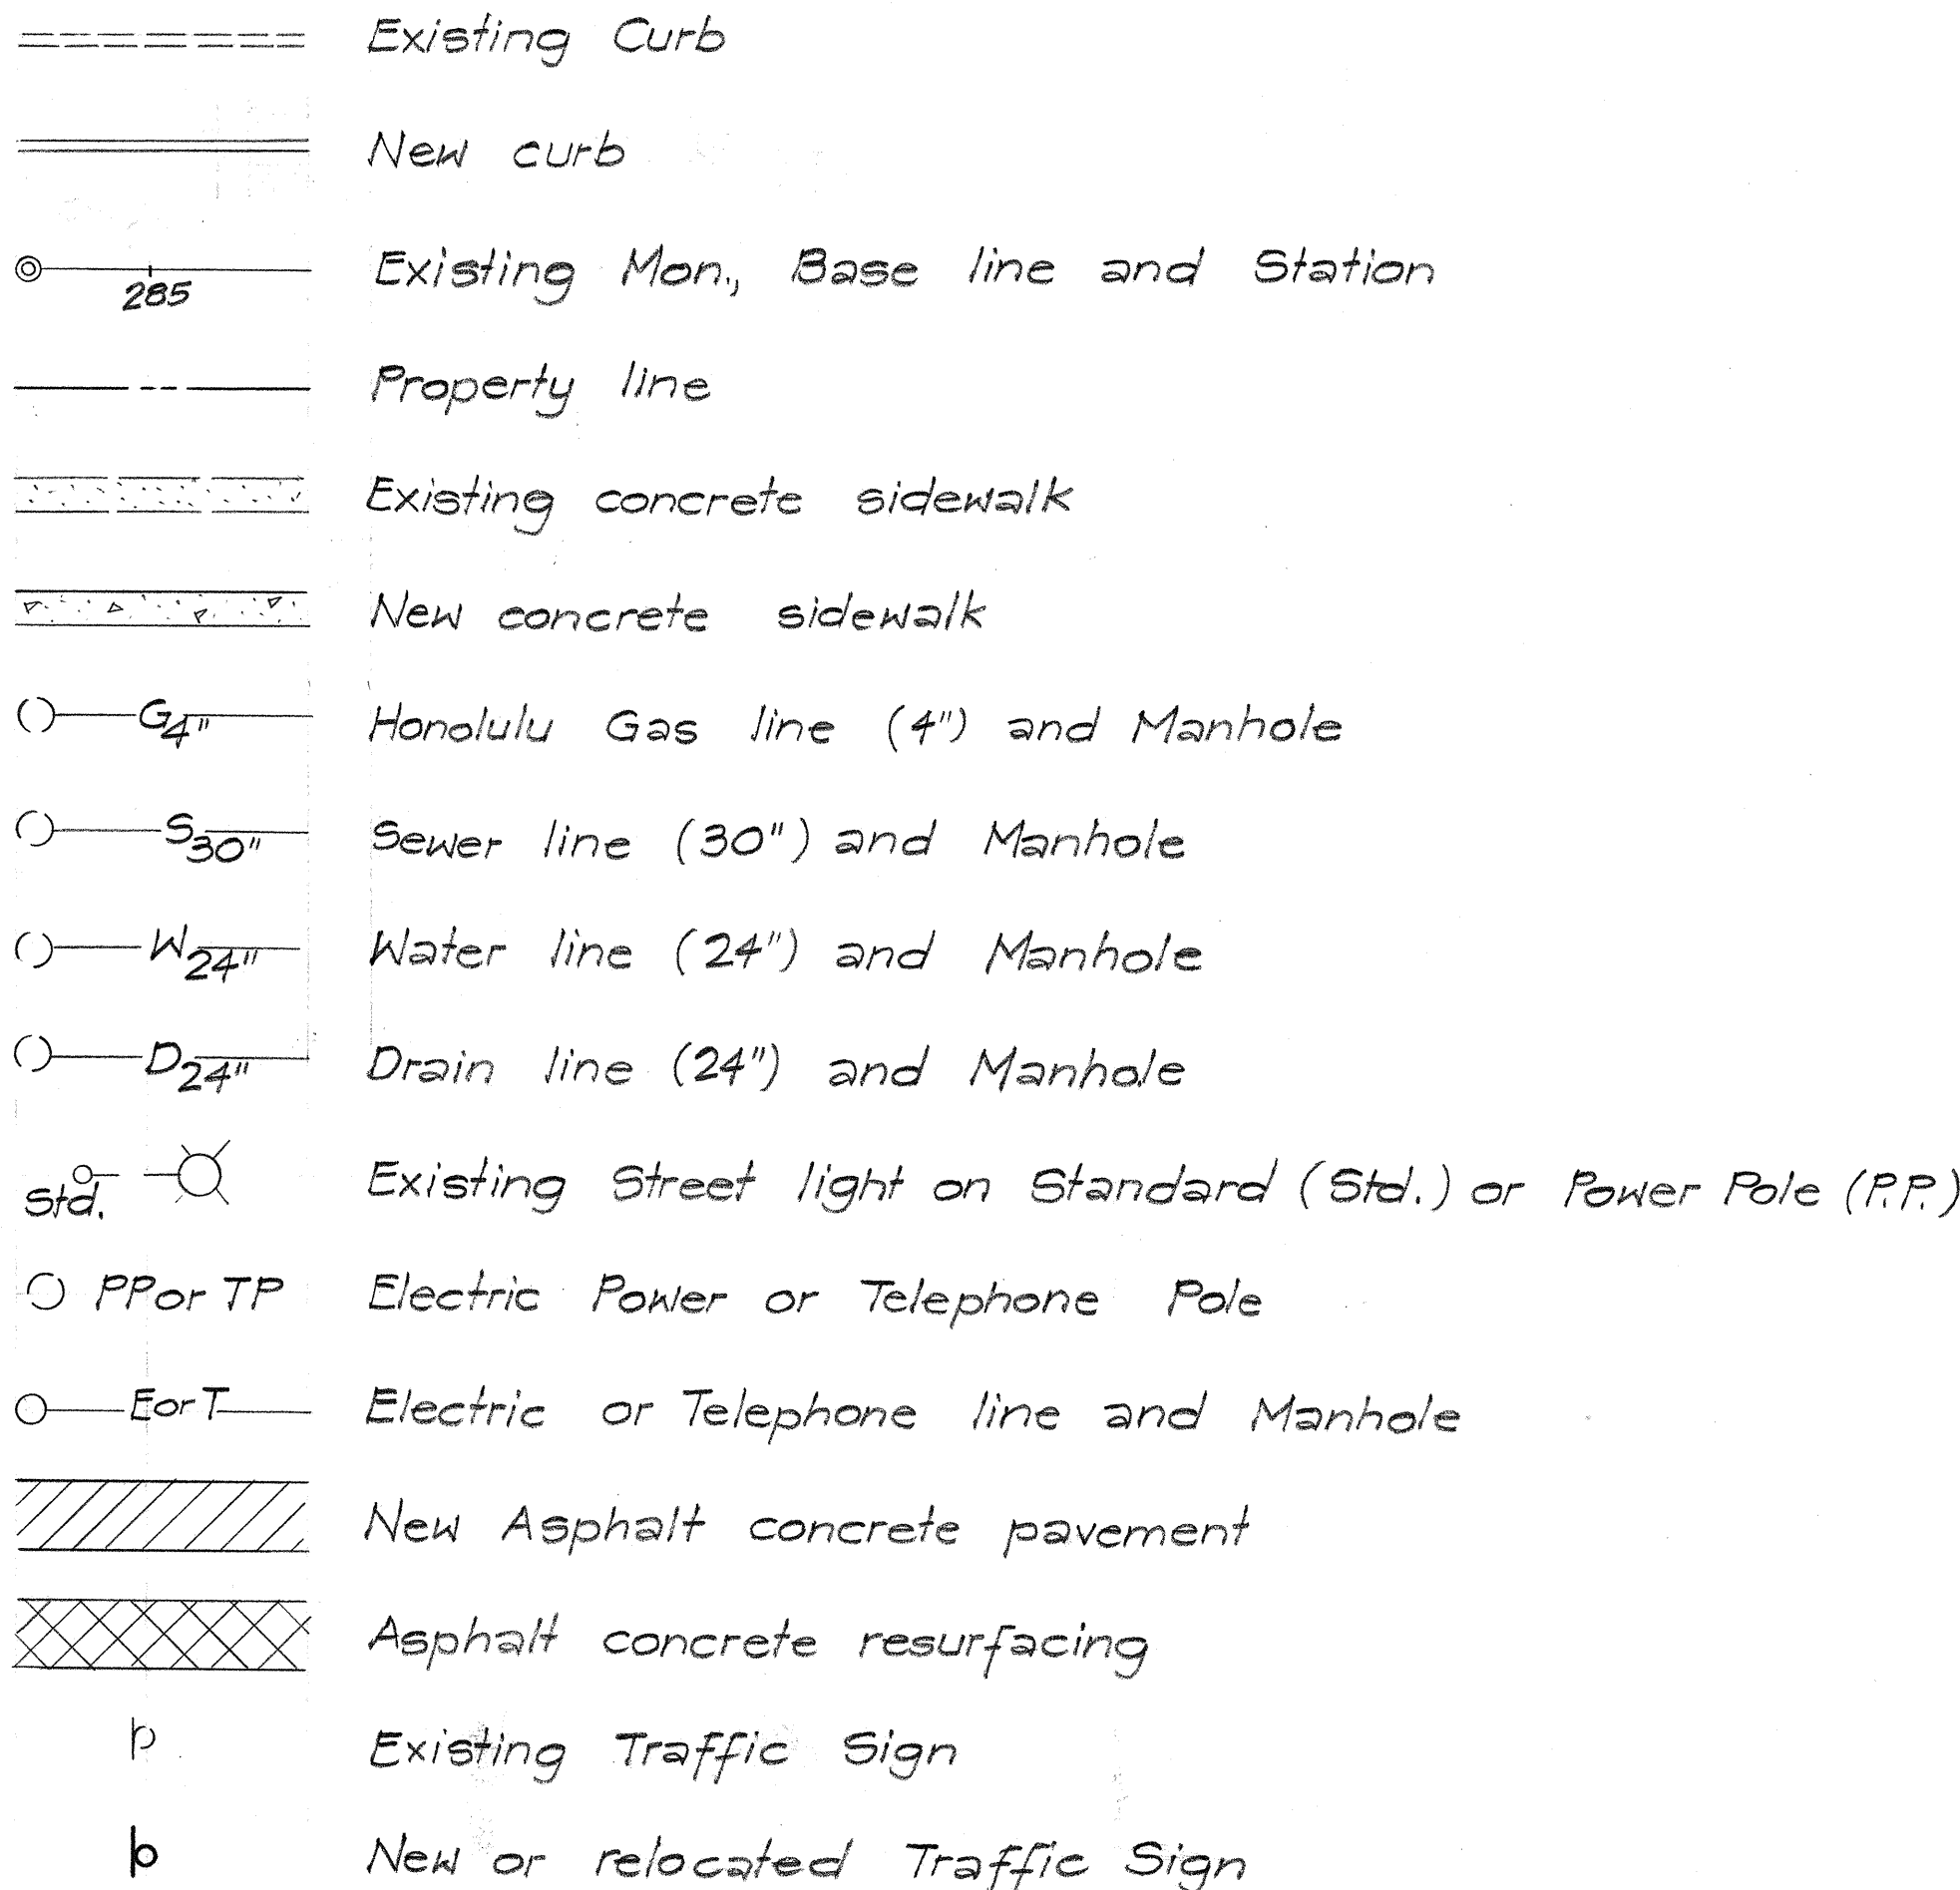 Existing Curb
New curb
285 Existing Mon., Base line and Station
Property line
Existing concrete sidewalk
New concrete sidewalk
G4" Honolulu Gas line (4") and Manhole
S30" Sewer line (30") and Manhole
W24" Water line (24") and Manhole
D24" Drain line (24") and Manhole
Std. Existing Street light on Standard (Std.) or Power Pole (P.P.)
PP or TP Electric Power or Telephone Pole
E or T Electric or Telephone line and Manhole
New Asphalt concrete pavement
Asphalt concrete resurfacing
Existing Traffic Sign
New or relocated Traffic Sign